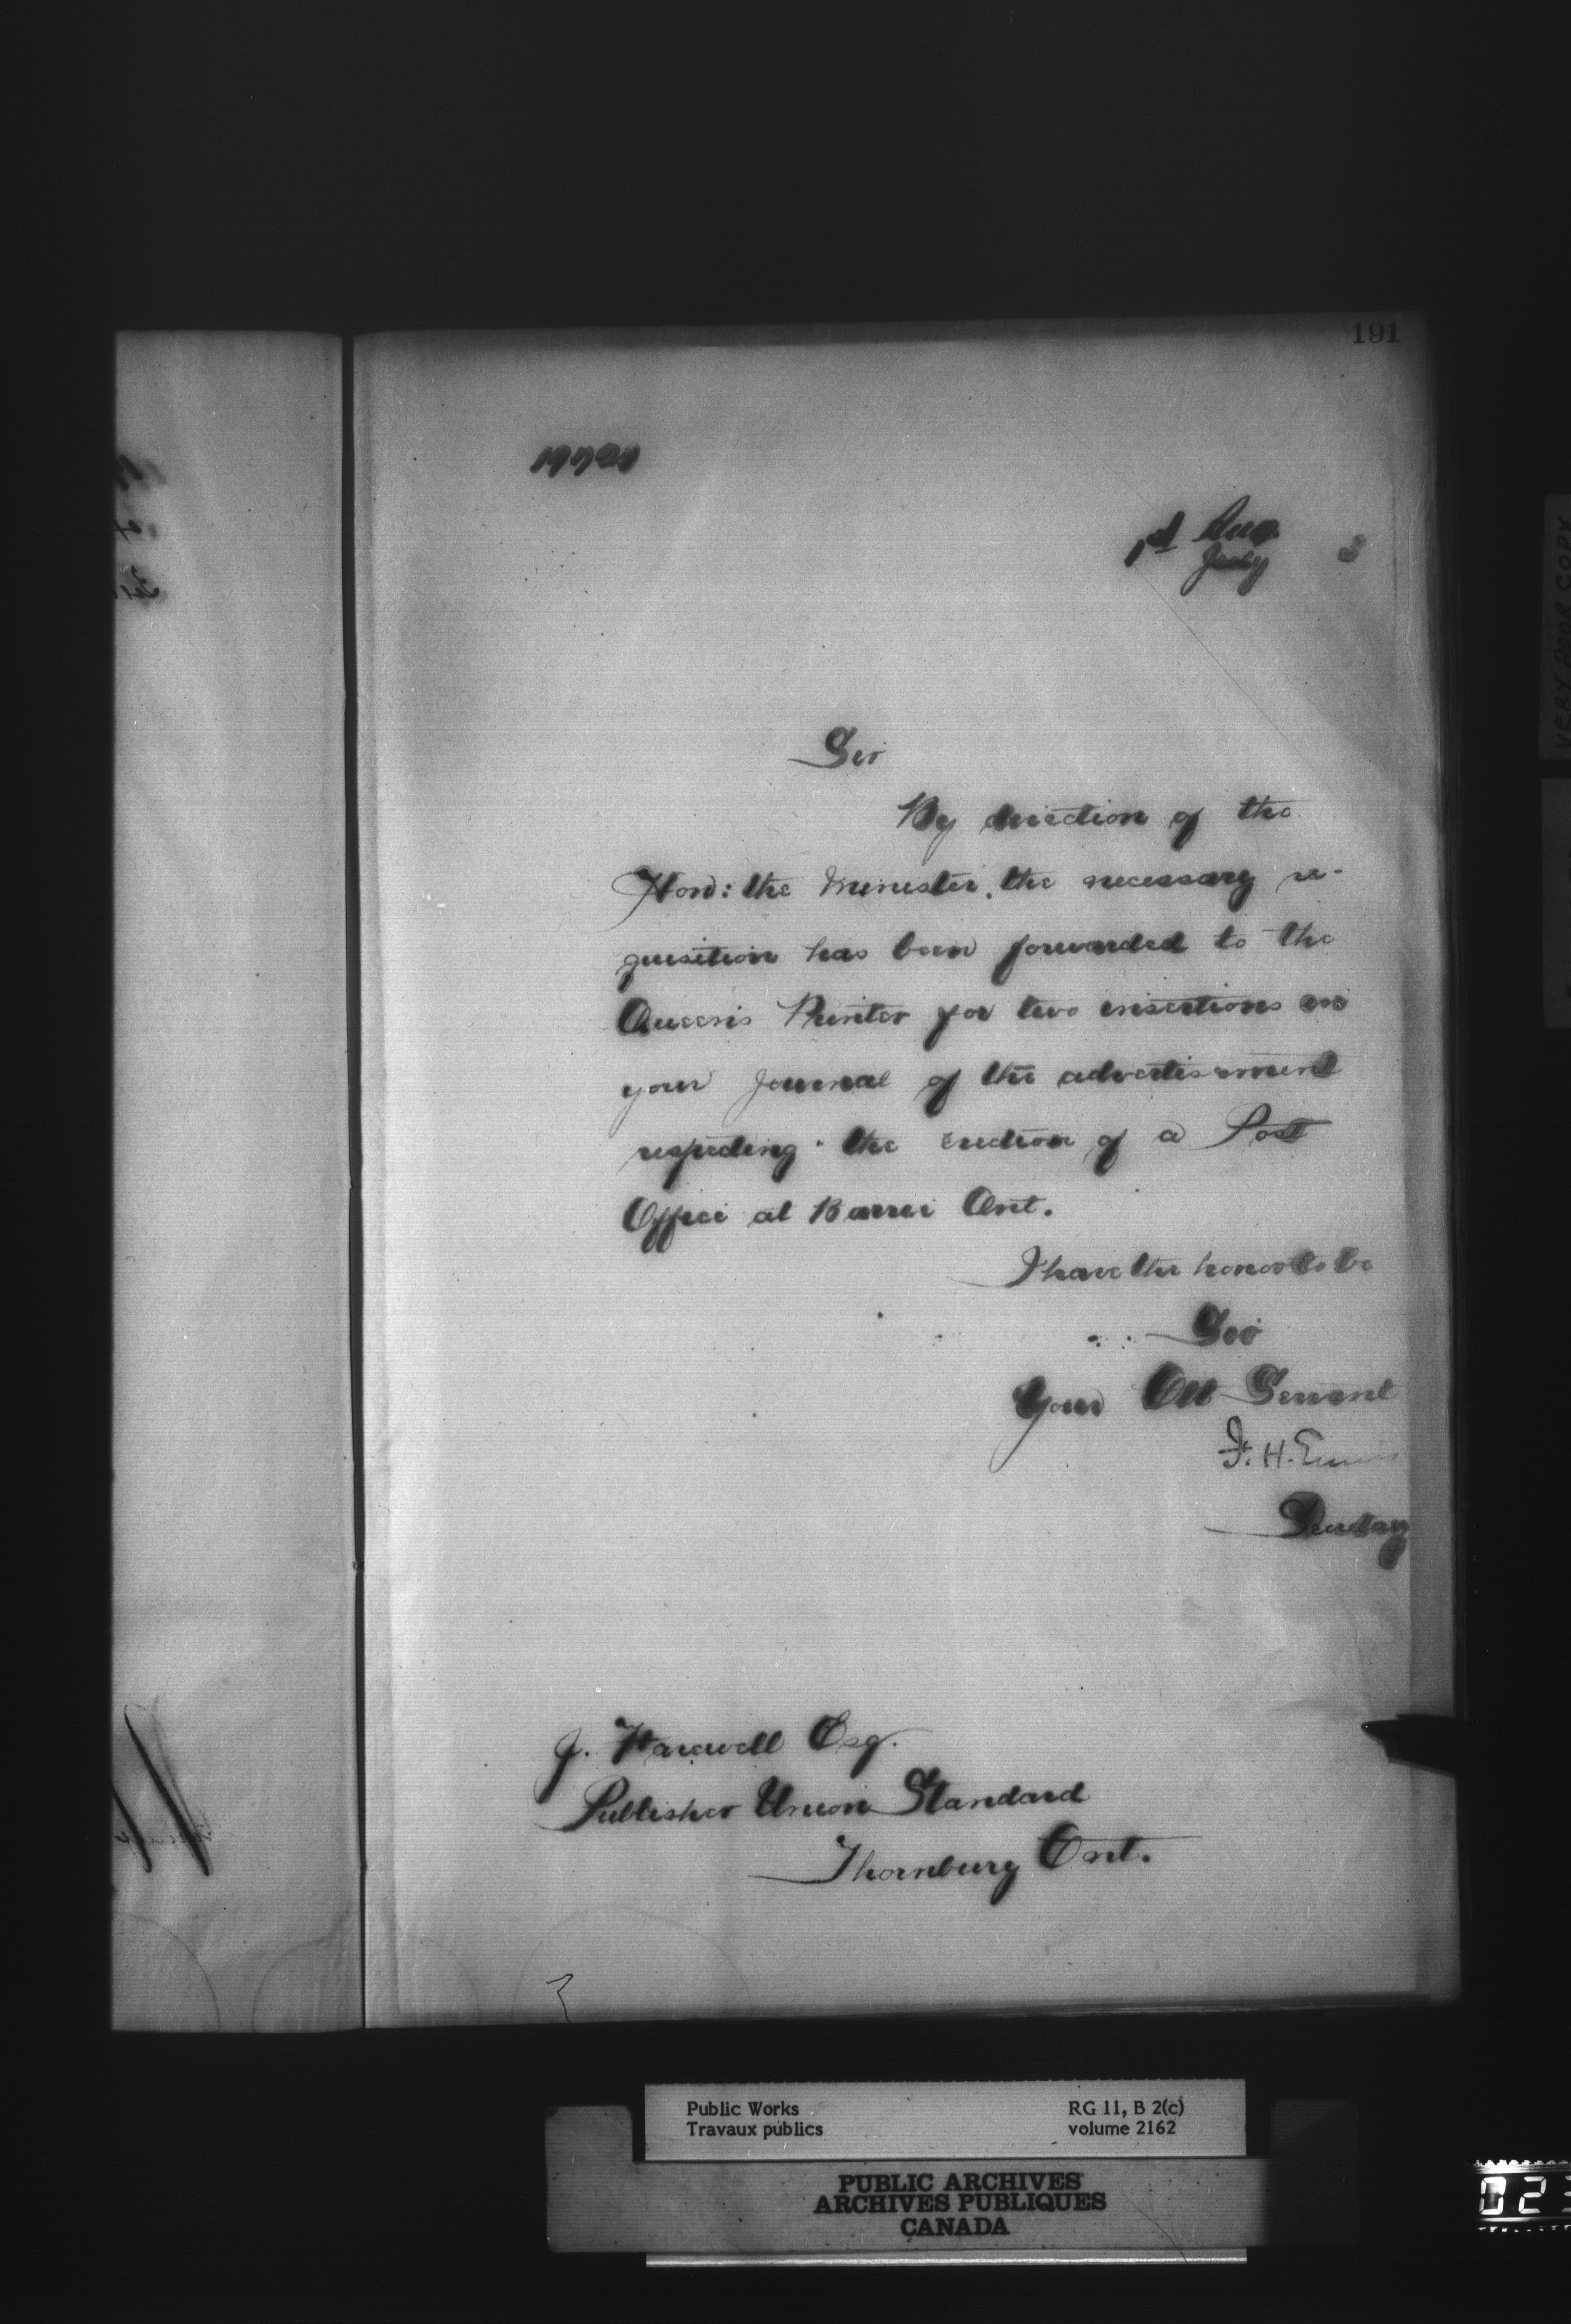 191
1st Aug
July
Sir
By direction of the
Hon: the Minister, the necessary re-
quisition has been forwarded to the
Queen's Printer for two insertions in
your journal of the advertisement
respecting the erection of a Post
Office at Barrie Ont.
I have the honor to be
Sir
Your Obt Servant
F. H. Ennis
Secretary
J. Esq.
Publisher Union Standard
Thornbury Ont.
Public Works
Travaux publics
RG 11, B 2(c)
volume 2162
PUBLIC ARCHIVES
ARCHIVES PUBLIQUES
CANADA
VERY POOR COPY